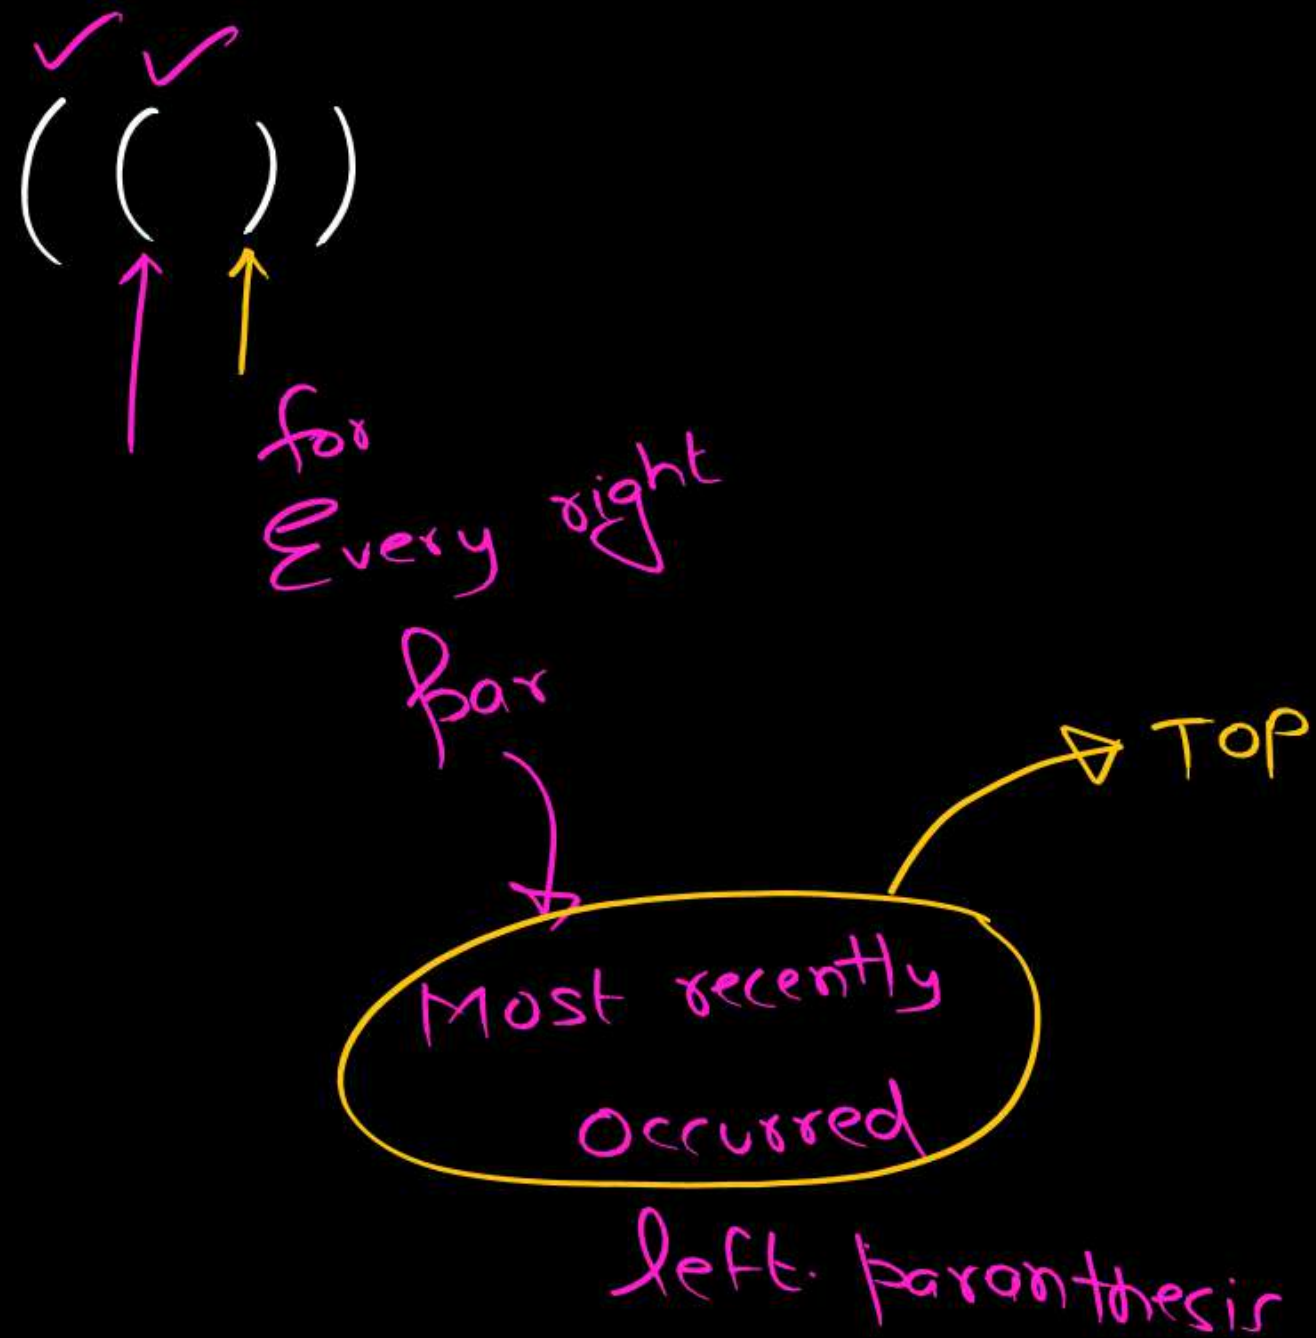 ( ( ) )
for
Every right
Par
TOP
Most recently
occurred
left. paronthesis